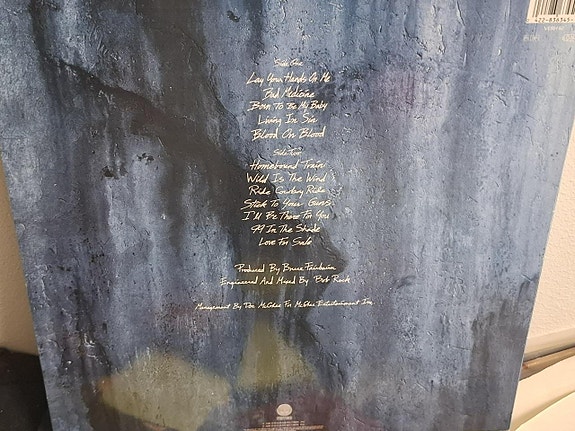 Side One
Lay Your Hands On Me
Bad Medicine
Born To Be My Baby
Living In Sin
Blood On Blood
Side Two
Homebound Train
Wild Is The Wind
Ride Cowboy Ride
Stick To Your Guns
I'll Be There For You
99 In The Shade
Love For Sale
Produced By Bruce Fairbairn
Engineered And Mixed By Bob Rock
Management By Doc McGhee For McGhee Entertainment Inc.